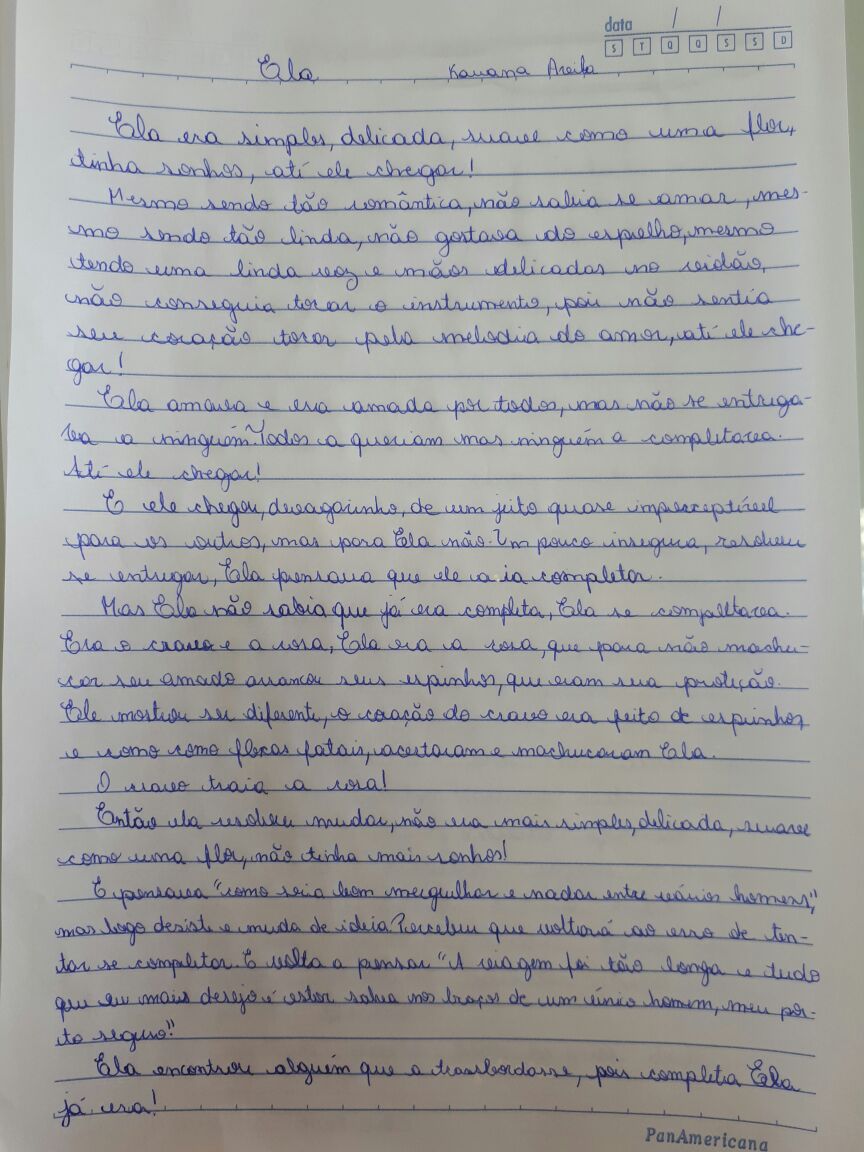 data / /
S T Q Q S S D
Ela Kauana Areifa
Ela era simples, delicada, suave como uma flor,
tinha sonhos, até ele chegar!
Mesmo sendo tão romântica, não sabia se amar, mes-
mo sendo tão linda, não gostava do espelho, mesmo
tendo uma linda voz e mãos delicadas no violão,
não conseguia tocar o instrumento, pois não sentia
seu coração tocar pela melodia do amor, até ele che-
gar!
Ela amava e era amada por todos, mas não se entrega-
va a ninguém. Todos a queriam mas ninguém a completava.
Até ele chegar!
E ele chegou, devagarinho, de um jeito quase imperceptível
para os outros, mas para Ela não. Um pouco insegura, resolveu
se entregar, Ela pensava que ele a ia completar.
Mas Ela não sabia que já era completa, Ela se completava.
Era o cravo e a rosa, Ela era a rosa, que para não machu-
car seu amado arrancou seus espinhos, que eram sua proteção.
Ele mostrou ser diferente, o coração do cravo era feito de espinhos
e como como flexas fatais, acertaram e machucaram Ela.
O cravo traia a rosa!
Então ela resolveu mudar, não era mais simples, delicada, suave
como uma flor, não tinha mais sonhos!
E pensava "como seria bom mergulhar e nadar entre vários homens",
mas logo desiste e muda de ideia. Percebeu que voltará ao erro de ten-
tar se completar. E volta a pensar "A viagem foi tão longa e tudo
que eu mais desejo é estar salva nos braços de um único homem, meu por-
to seguro."
Ela encontrou alguém que a transbordasse, pois completa Ela
já era!
PanAmericana